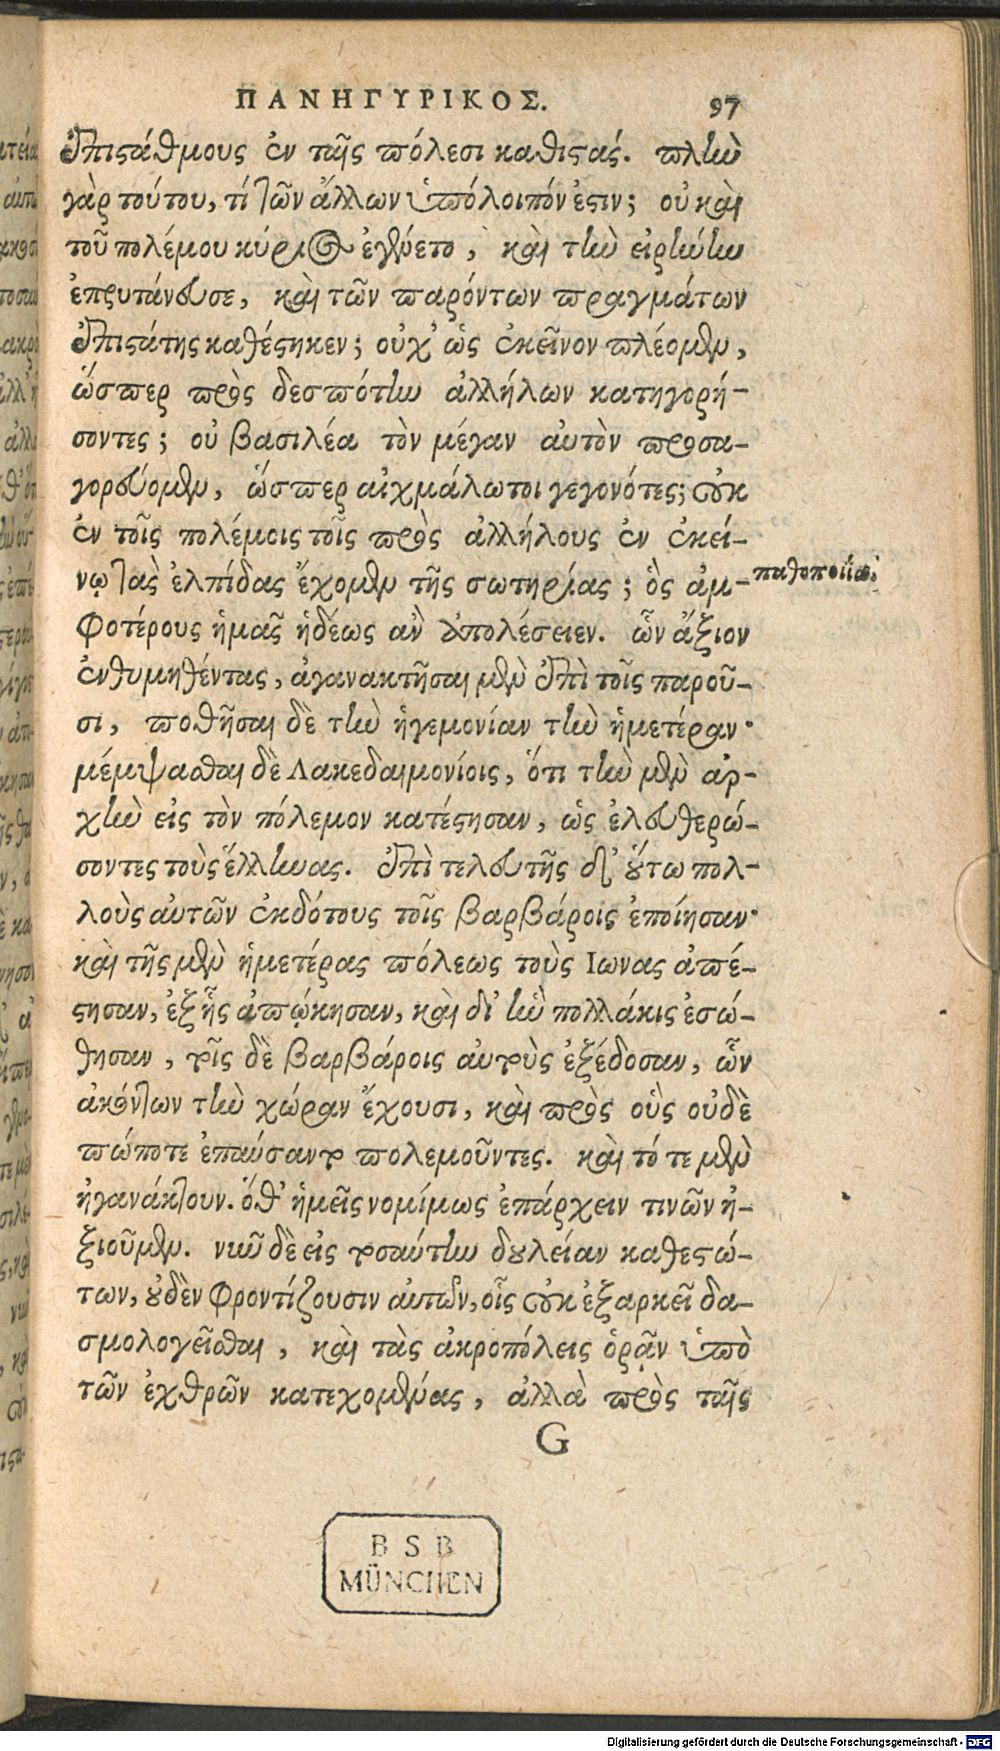 ΠΑΝΗΓΥΡΙΚΟΣ. 97
ἐπιστάθμους ἐν ταῖς πόλεσι καθιστάς. πλὴν
γὰρ τούτου, τί τῶν ἄλλων ὑπόλοιπόν ἐστιν; οὐ καὶ
τοῦ πολέμου κύριος ἐγένετο, καὶ τὴν εἰρήνην
ἐπρυτάνευσε, καὶ τῶν παρόντων πραγμάτων
ἐπιστάτης καθέστηκεν; οὐχ' ὡς ἐκεῖνον πλέομεν,
ὥσπερ πρὸς δεσπότην ἀλλήλων κατηγορή-
σοντες; οὐ βασιλέα τὸν μέγαν αὐτὸν προσα-
γορεύομεν, ὥσπερ αἰχμάλωτοι γεγονότες; οὐκ
ἐν τοῖς πολέμοις τοῖς πρὸς ἀλλήλους ἐν ἐκεί-
νῳ τὰς ἐλπίδας ἔχομεν τῆς σωτηρίας; ὃς ἀμ-
παθοποιΐα.
φοτέρους ἡμᾶς ἡδέως ἂν ἀπολέσειεν. ὧν ἄξιον
ἐνθυμηθέντας, ἀγανακτῆσαι μὲν ἐπὶ τοῖς παροῦ-
σι, ποθῆσαι δὲ τὴν ἡγεμονίαν τὴν ἡμετέραν·
μέμψασθαι δὲ Λακεδαιμονίοις, ὅτι τὴν μὲν ἀρ-
χὴν εἰς τὸν πόλεμον κατέστησαν, ὡς ἐλευθερώ-
σοντες τοὺς ἕλληνας. ἐπὶ τελευτῆς δ' οὕτω πολ-
λοὺς αὐτῶν ἐκδότους τοῖς βαρβάροις ἐποίησαν·
καὶ τῆς μὲν ἡμετέρας πόλεως τοὺς Ιωνας ἀπέ-
στησαν, ἐξ ἧς ἀπῴκησαν, καὶ δι' ἣν πολλάκις ἐσώ-
θησαν, τοῖς δὲ βαρβάροις αὐτοὺς ἐξέδοσαν, ὧν
ἀκόντων τὴν χώραν ἔχουσι, καὶ πρὸς οὓς οὐδὲ
πώποτε ἐπαύσαντο πολεμοῦντες. καὶ τό τε μὲν
ἠγανάκτουν. ὅθ' ἡμεῖς νομίμως ἐπάρχειν τινῶν ἠ-
ξιοῦμεν. νῦν δὲ εἰς τοσαύτην δουλείαν καθεστώ-
των, οὐδὲν φροντίζουσιν αὐτῶν, οἷς οὐκ ἐξαρκεῖ δα-
σμολογεῖσθαι, καὶ τὰς ἀκροπόλεις ὁρᾷν ὑπὸ
τῶν ἐχθρῶν κατεχομένας, ἀλλὰ πρὸς ταῖς
G
BSB
MÜNCHEN
Digitalisierung gefördert durch die Deutsche Forschungsgemeinschaft - DFG